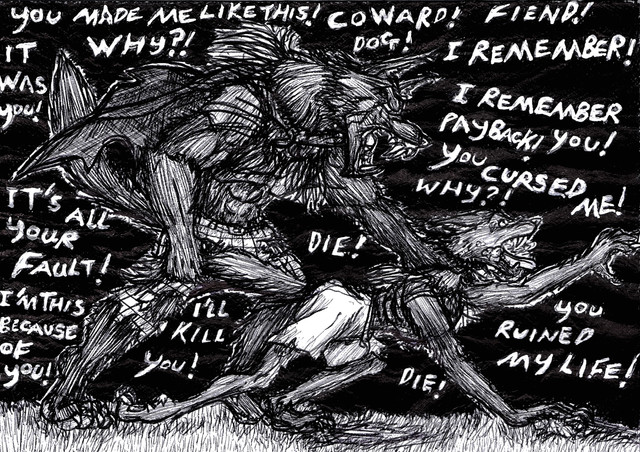 YOU MADE ME LIKE THIS!
WHY?!
COWARD!
DOG!
FIEND!
I REMEMBER!
IT
WAS
YOU!
I REMEMBER
PAYBACK! YOU!
YOU CURSED
WHY?! ME!
IT'S ALL
YOUR
FAULT!
DIE!
I'M THIS
BECAUSE
OF
YOU!
I'LL
KILL
YOU!
YOU
RUINED
MY LIFE!
DIE!